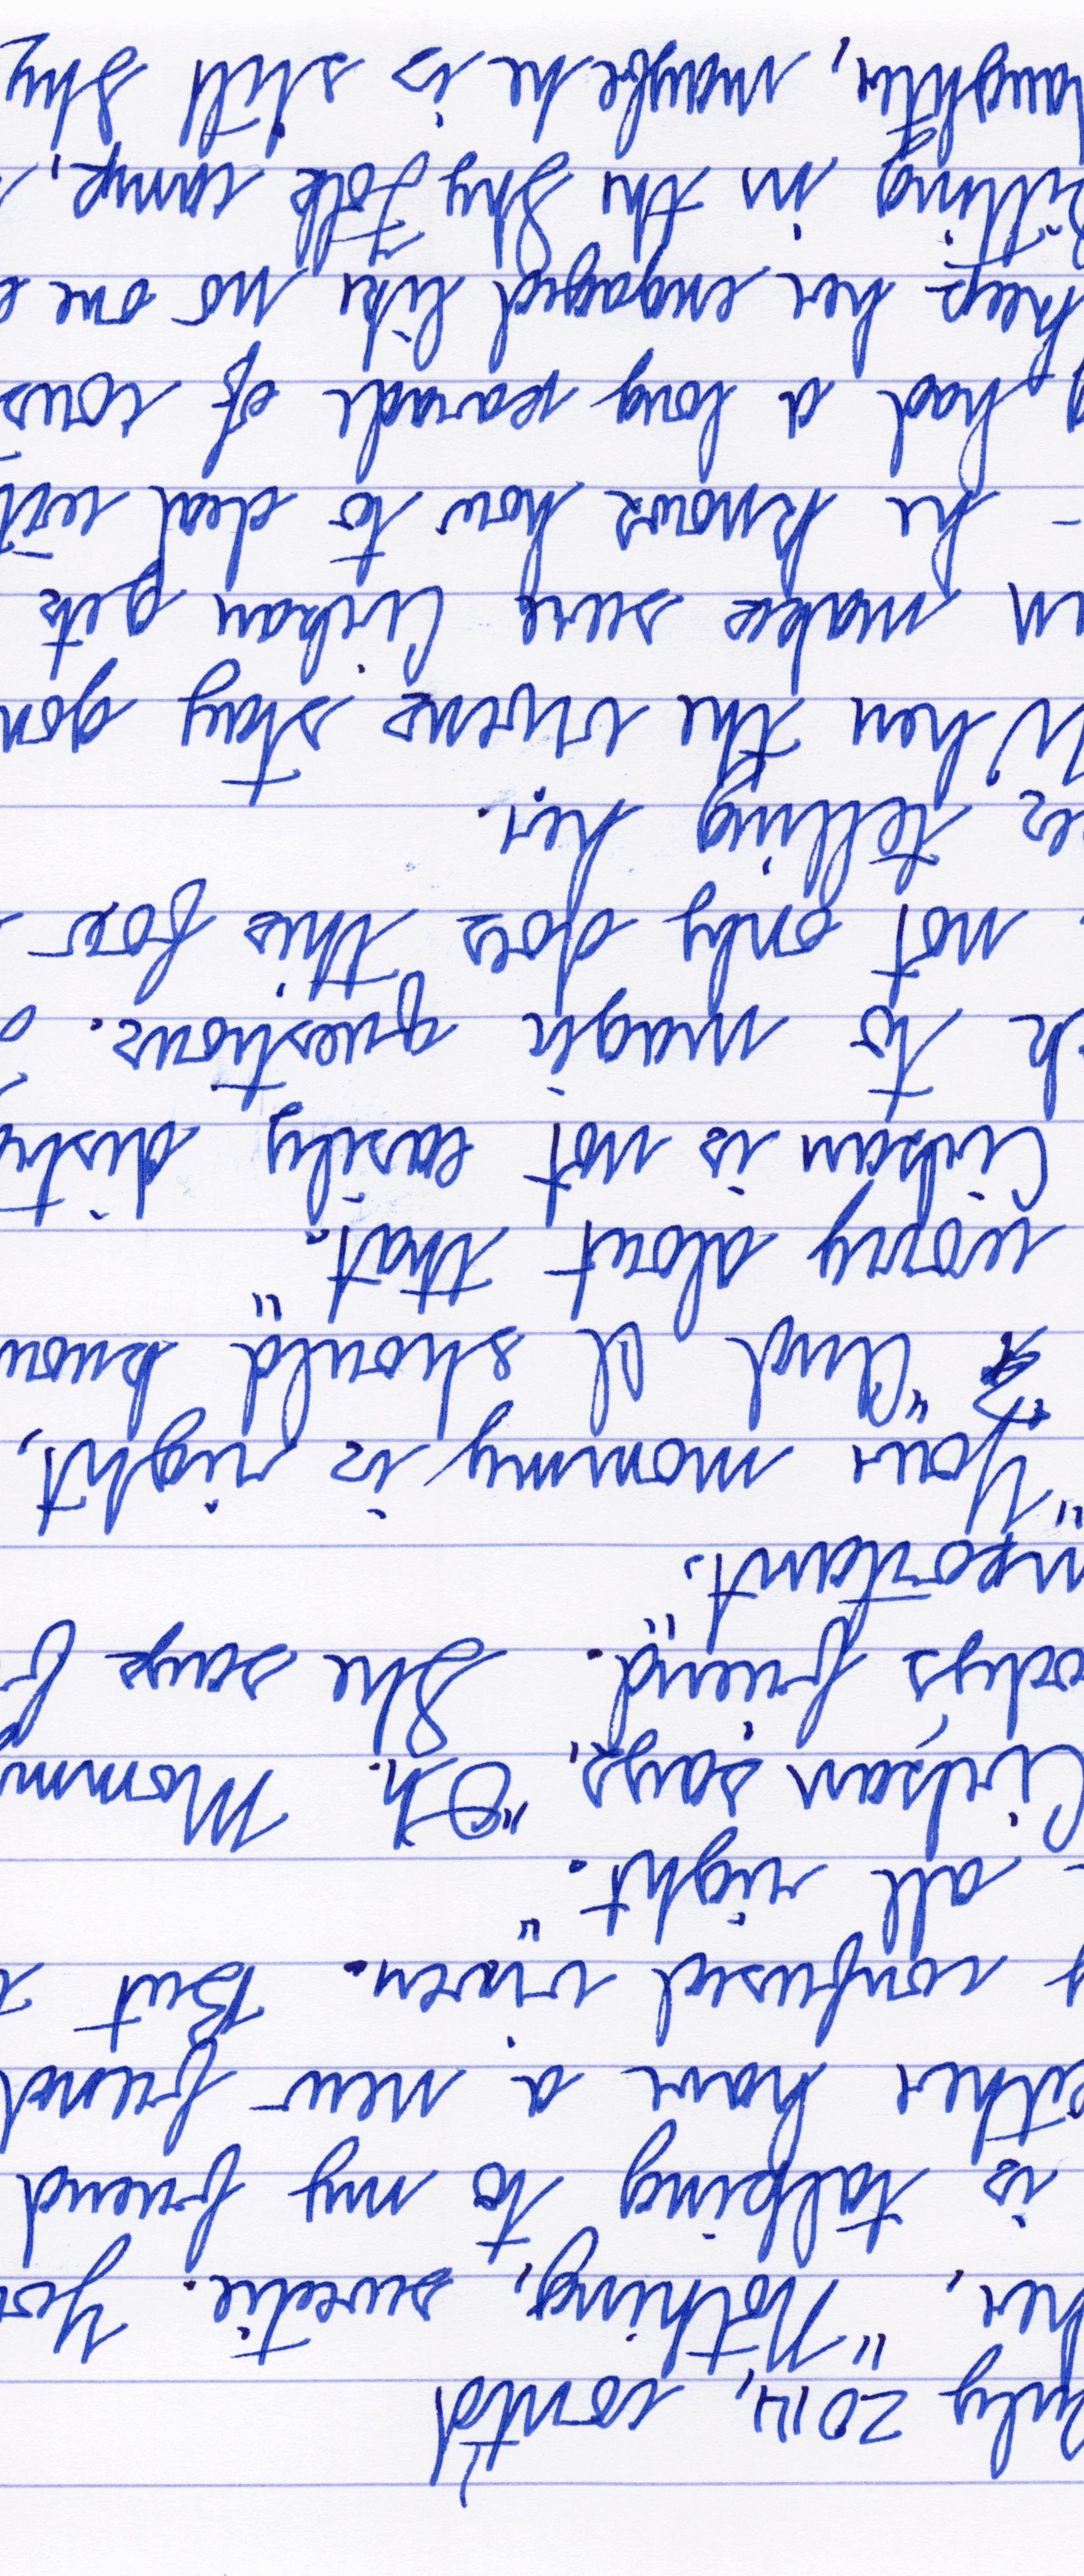 uly 2014, cont'd
her, "Nothing, sweetie. You
is talking to my friend
ether have a new friend
y confused vixen. But
all right."
says, "Oh. Momm
friend." She says f
mportant."
"Your mommy is right,
"And I should know
worry about that."
is not easily distra
to magic questions.
not only does this fox
es telling her.
When the vixens stay gon
makes sure gets
- he knows how to deal wit
had a long parade of cous
keep her engaged like no one e
itting in the Shy Folk camp,
aughter, maybe he is still Shy